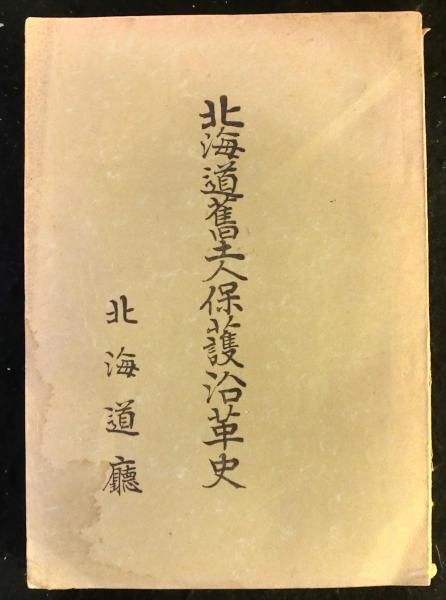 北海道舊土人保護沿革史
北海道廳